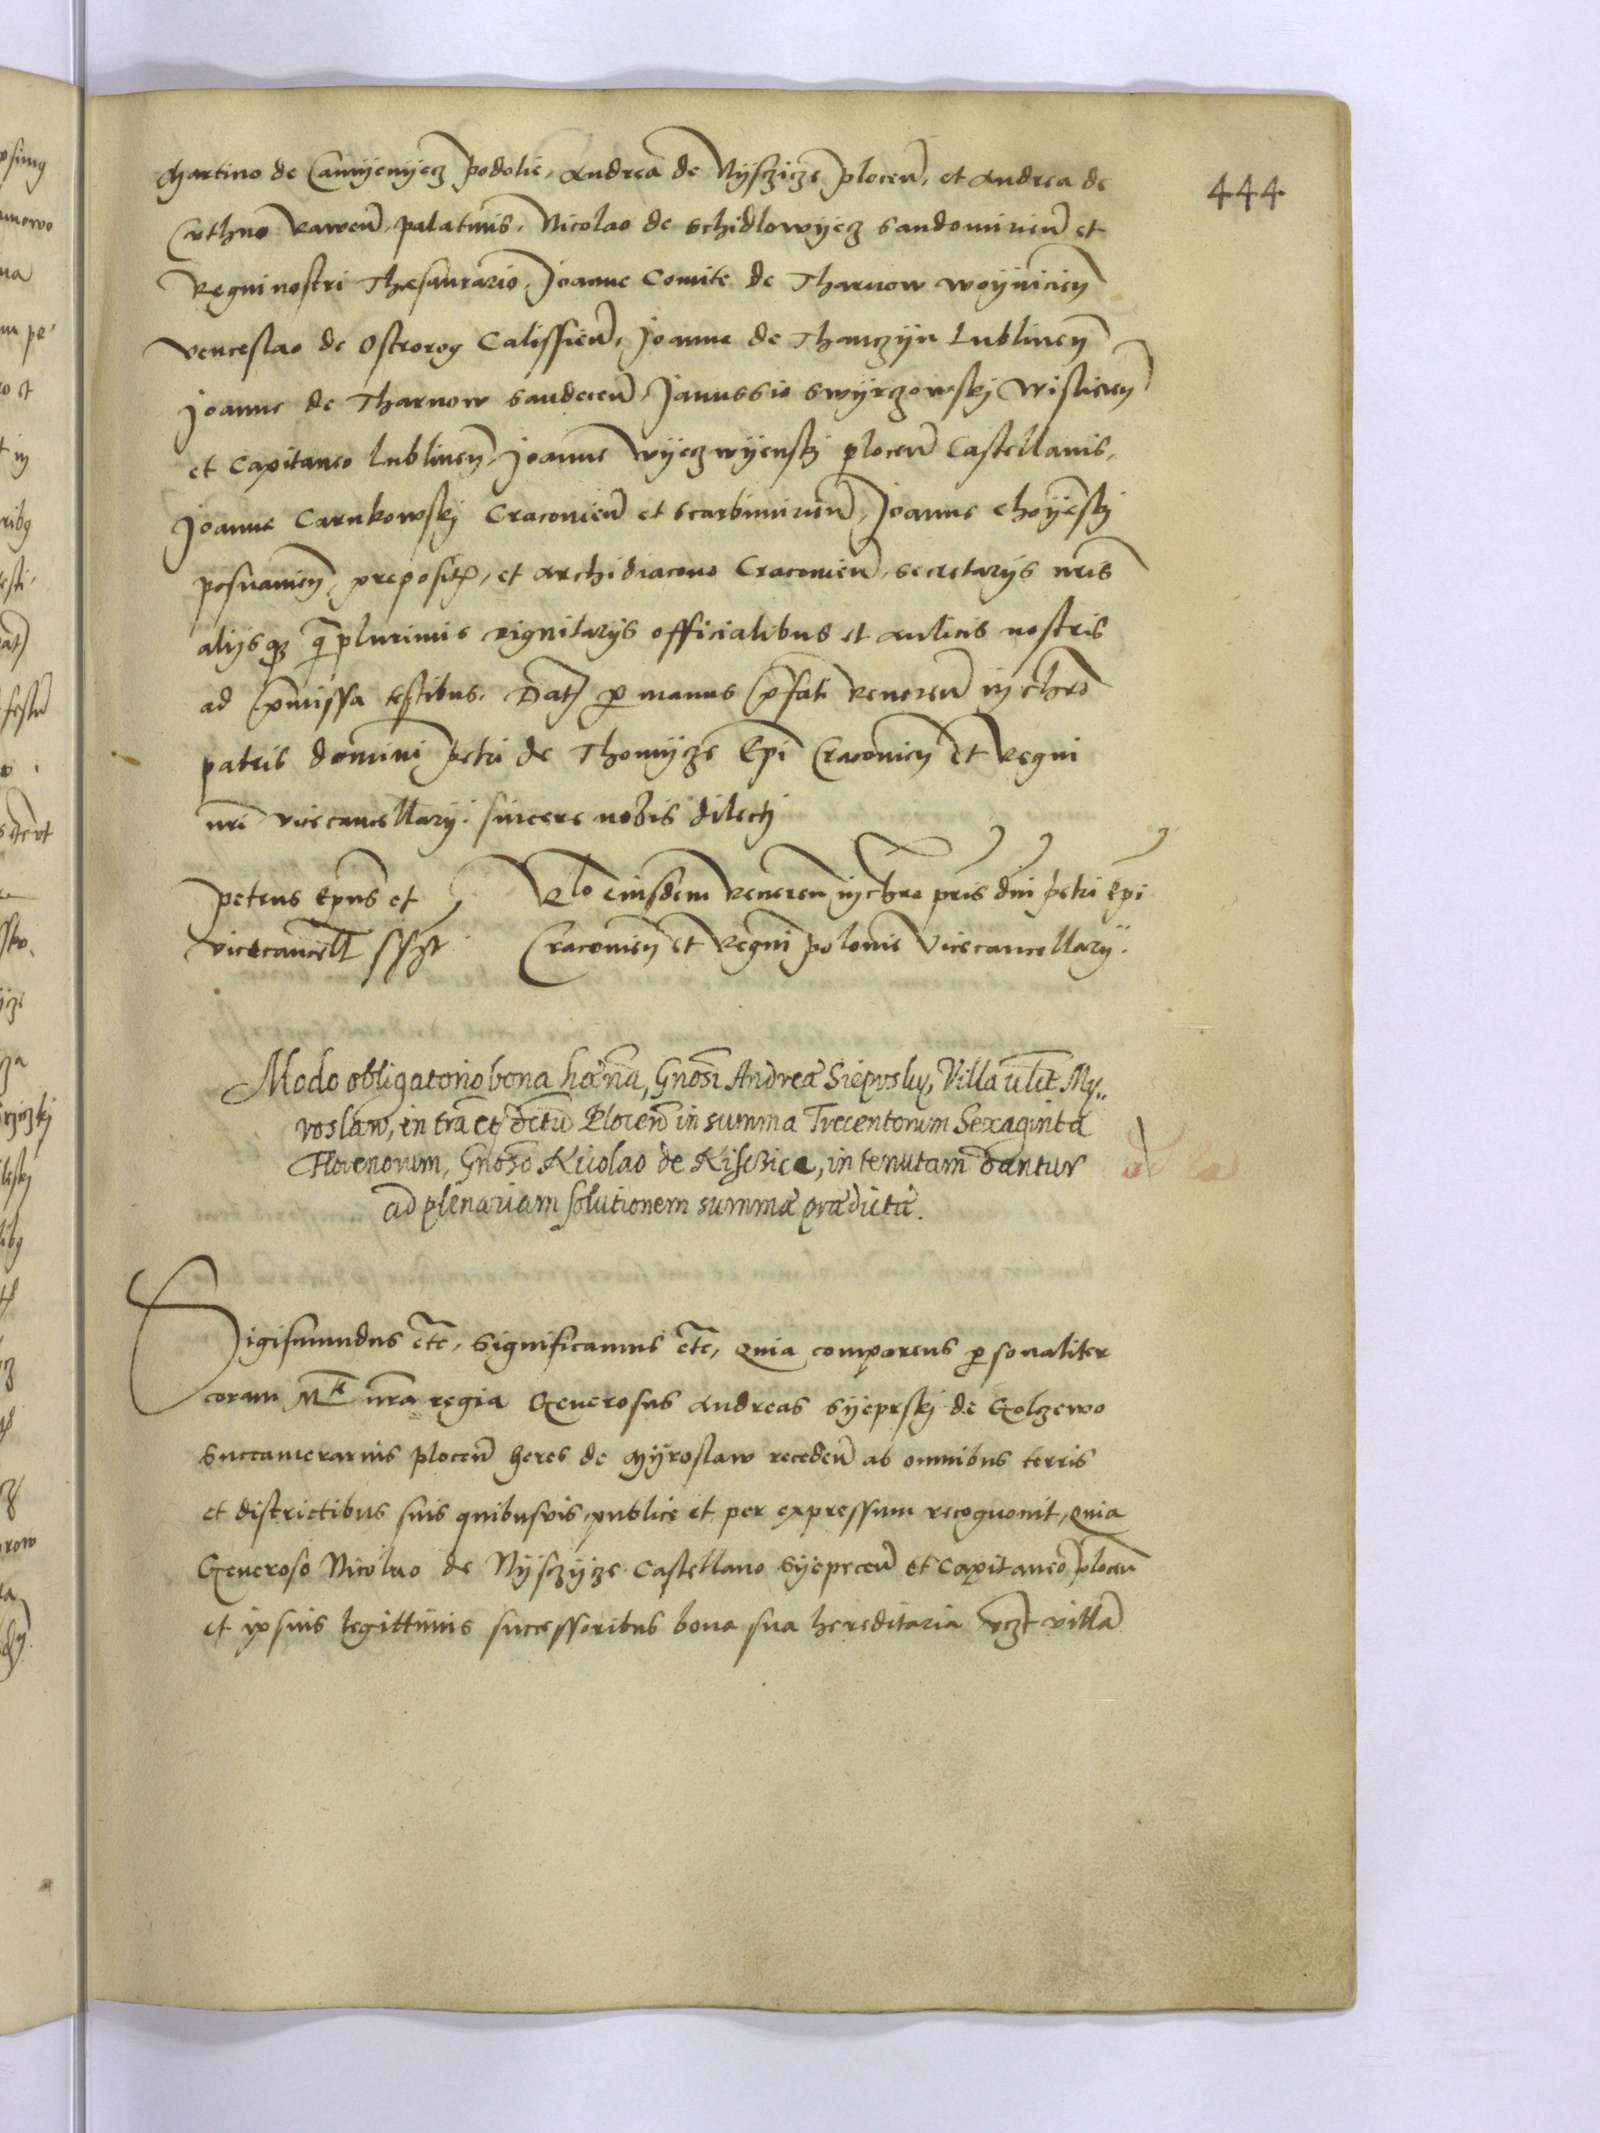 444
Martino de Camyenyecz podolie, Andrea de Nysczicze plocen, et Andrea de
Cuthno Rawen, palatinis, Nicolao de Schidlowyecz Sandomirien et
Regni nostri Thesaurario, Joanne Comite de Tharnow woynicien
venceslao de Ostrorog Calissien, Joanne de Thanczyn Lublinen
Joanne de Tharnow Sandecen, Janussio Swyrczowskj Wislicien
et Capitaneo Lublinen, Joanne Wyeczwyenskj plocen Castellanis,
Joanne Carnkowskj Cracovien et Scarbimirien, Joanne Choyenskj
posnanien, preposit, et Archidiacono Cracovien, Secretarys nris
alysq qplurimis dignitarys officialibus et Aulicis nostris
ad pmissa testibus. Dat p manus pfati Reveren in chro
patris domini petri de Thomycze Epi Cracovien et Regni
nri vicecancellary: sincere nobis dilecti
petrus Epus et
vicecancell sszt
Rlo eiusdem Reveren in chro pris dni petri Epi
Cracovien et Regni polonie Vicecancellary:
Modo obligatorio bona hærña, Gnosi Andreæ Siepvsky, Villa ulit My..
roslaw, in tra et dctu Plocen in summa Trecentorum Sexaginta
Florenorum, Gnoso Nicolao de Nisczice, in tenutam dantur
ad plenariam solutionem summæ prædictæ.
Sigismundus etc, Significamus etc, Quia comparens psonaliter
coram Mte nra regia Generosus Andreas Syeprskj de Golczewo
Succamerarius plocen heres de Myroslaw receden ab omnibus terris
et districtibus suis quibusvis publice et per expressum recognovit, Quia
Generoso Nicolao de Nysczycze Castellano Syeprcen et Capitaneo plocen
et ipsius legittimis successoribus bona sua hereditaria vczt villa